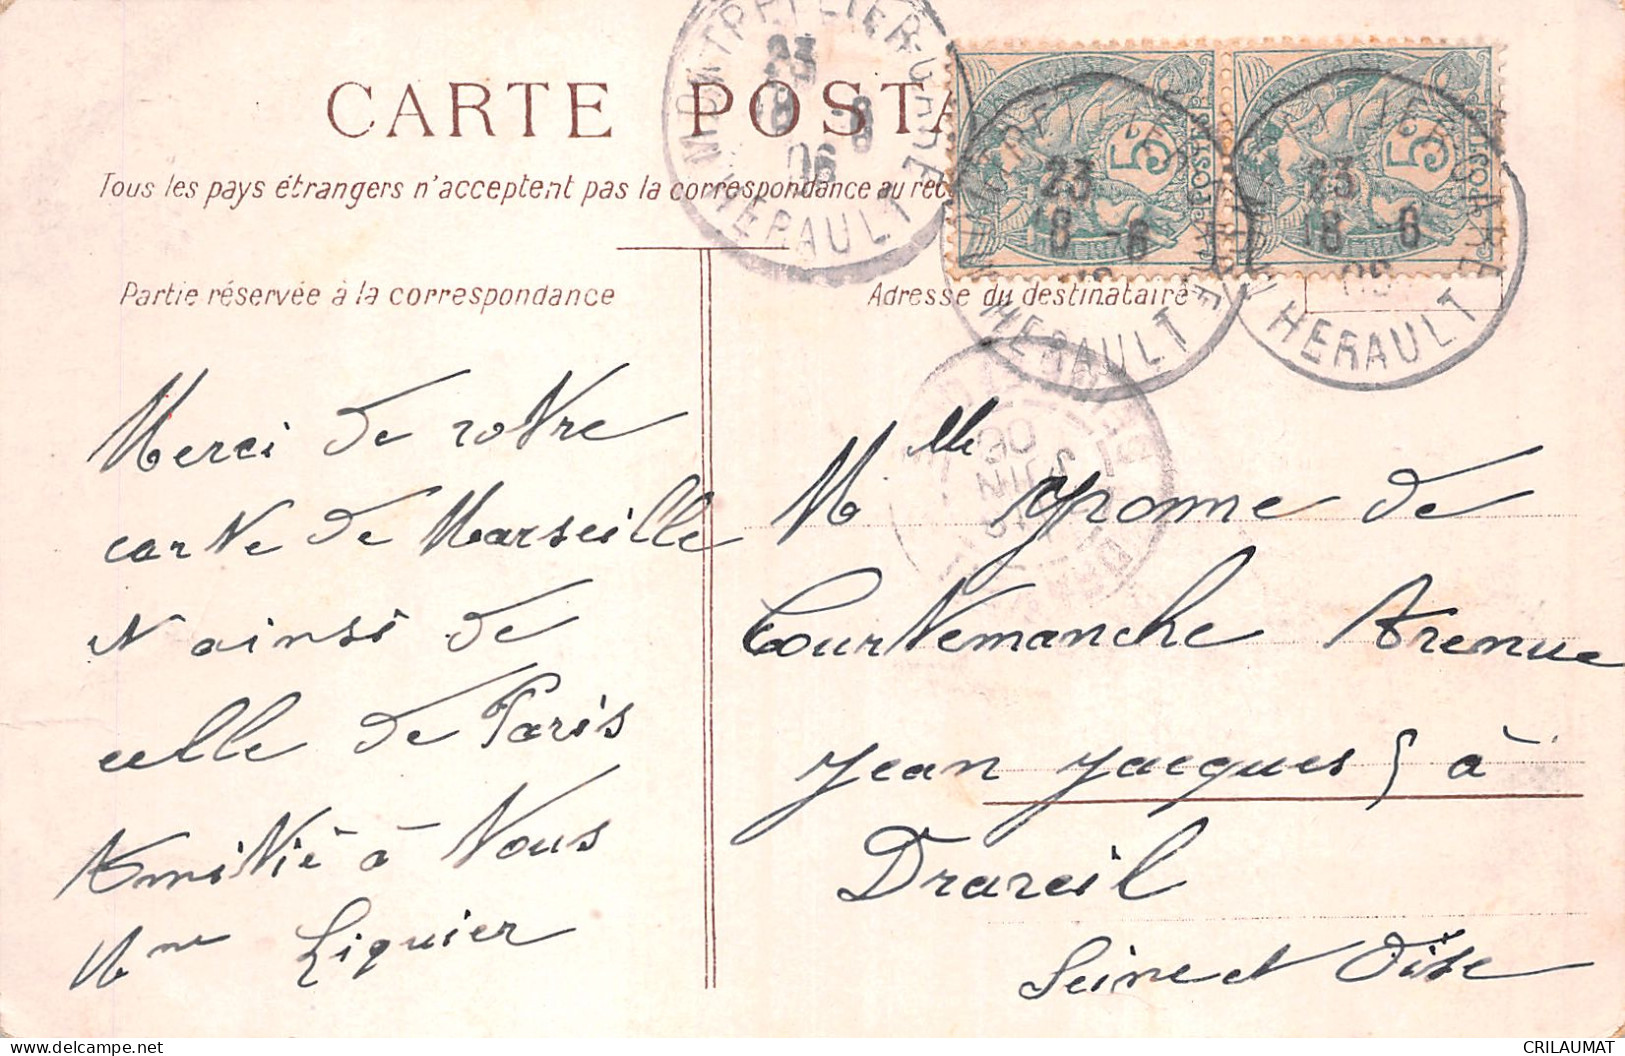 CARTE POSTA
Tous les pays étrangers n'acceptent pas la correspondance au rec
Partie réservée à la correspondance
Adresse du destinataire
MONTPELLIER-GARE
23
18 -6
06
HÉRAULT
23
18 -6
HERAULT
23
18 6
06
HERAULT
5
POSTES
5
POSTES
06
JUIN
Merci de votre
carte de Marseille
et ainsi de
celle de Paris
Amitié à Vous
Mme Liquier
Mlle Yvonne de
Courtemanche Avenue
Jean Jacques à
Draveil
Seine et Oise
CRILAUMAT